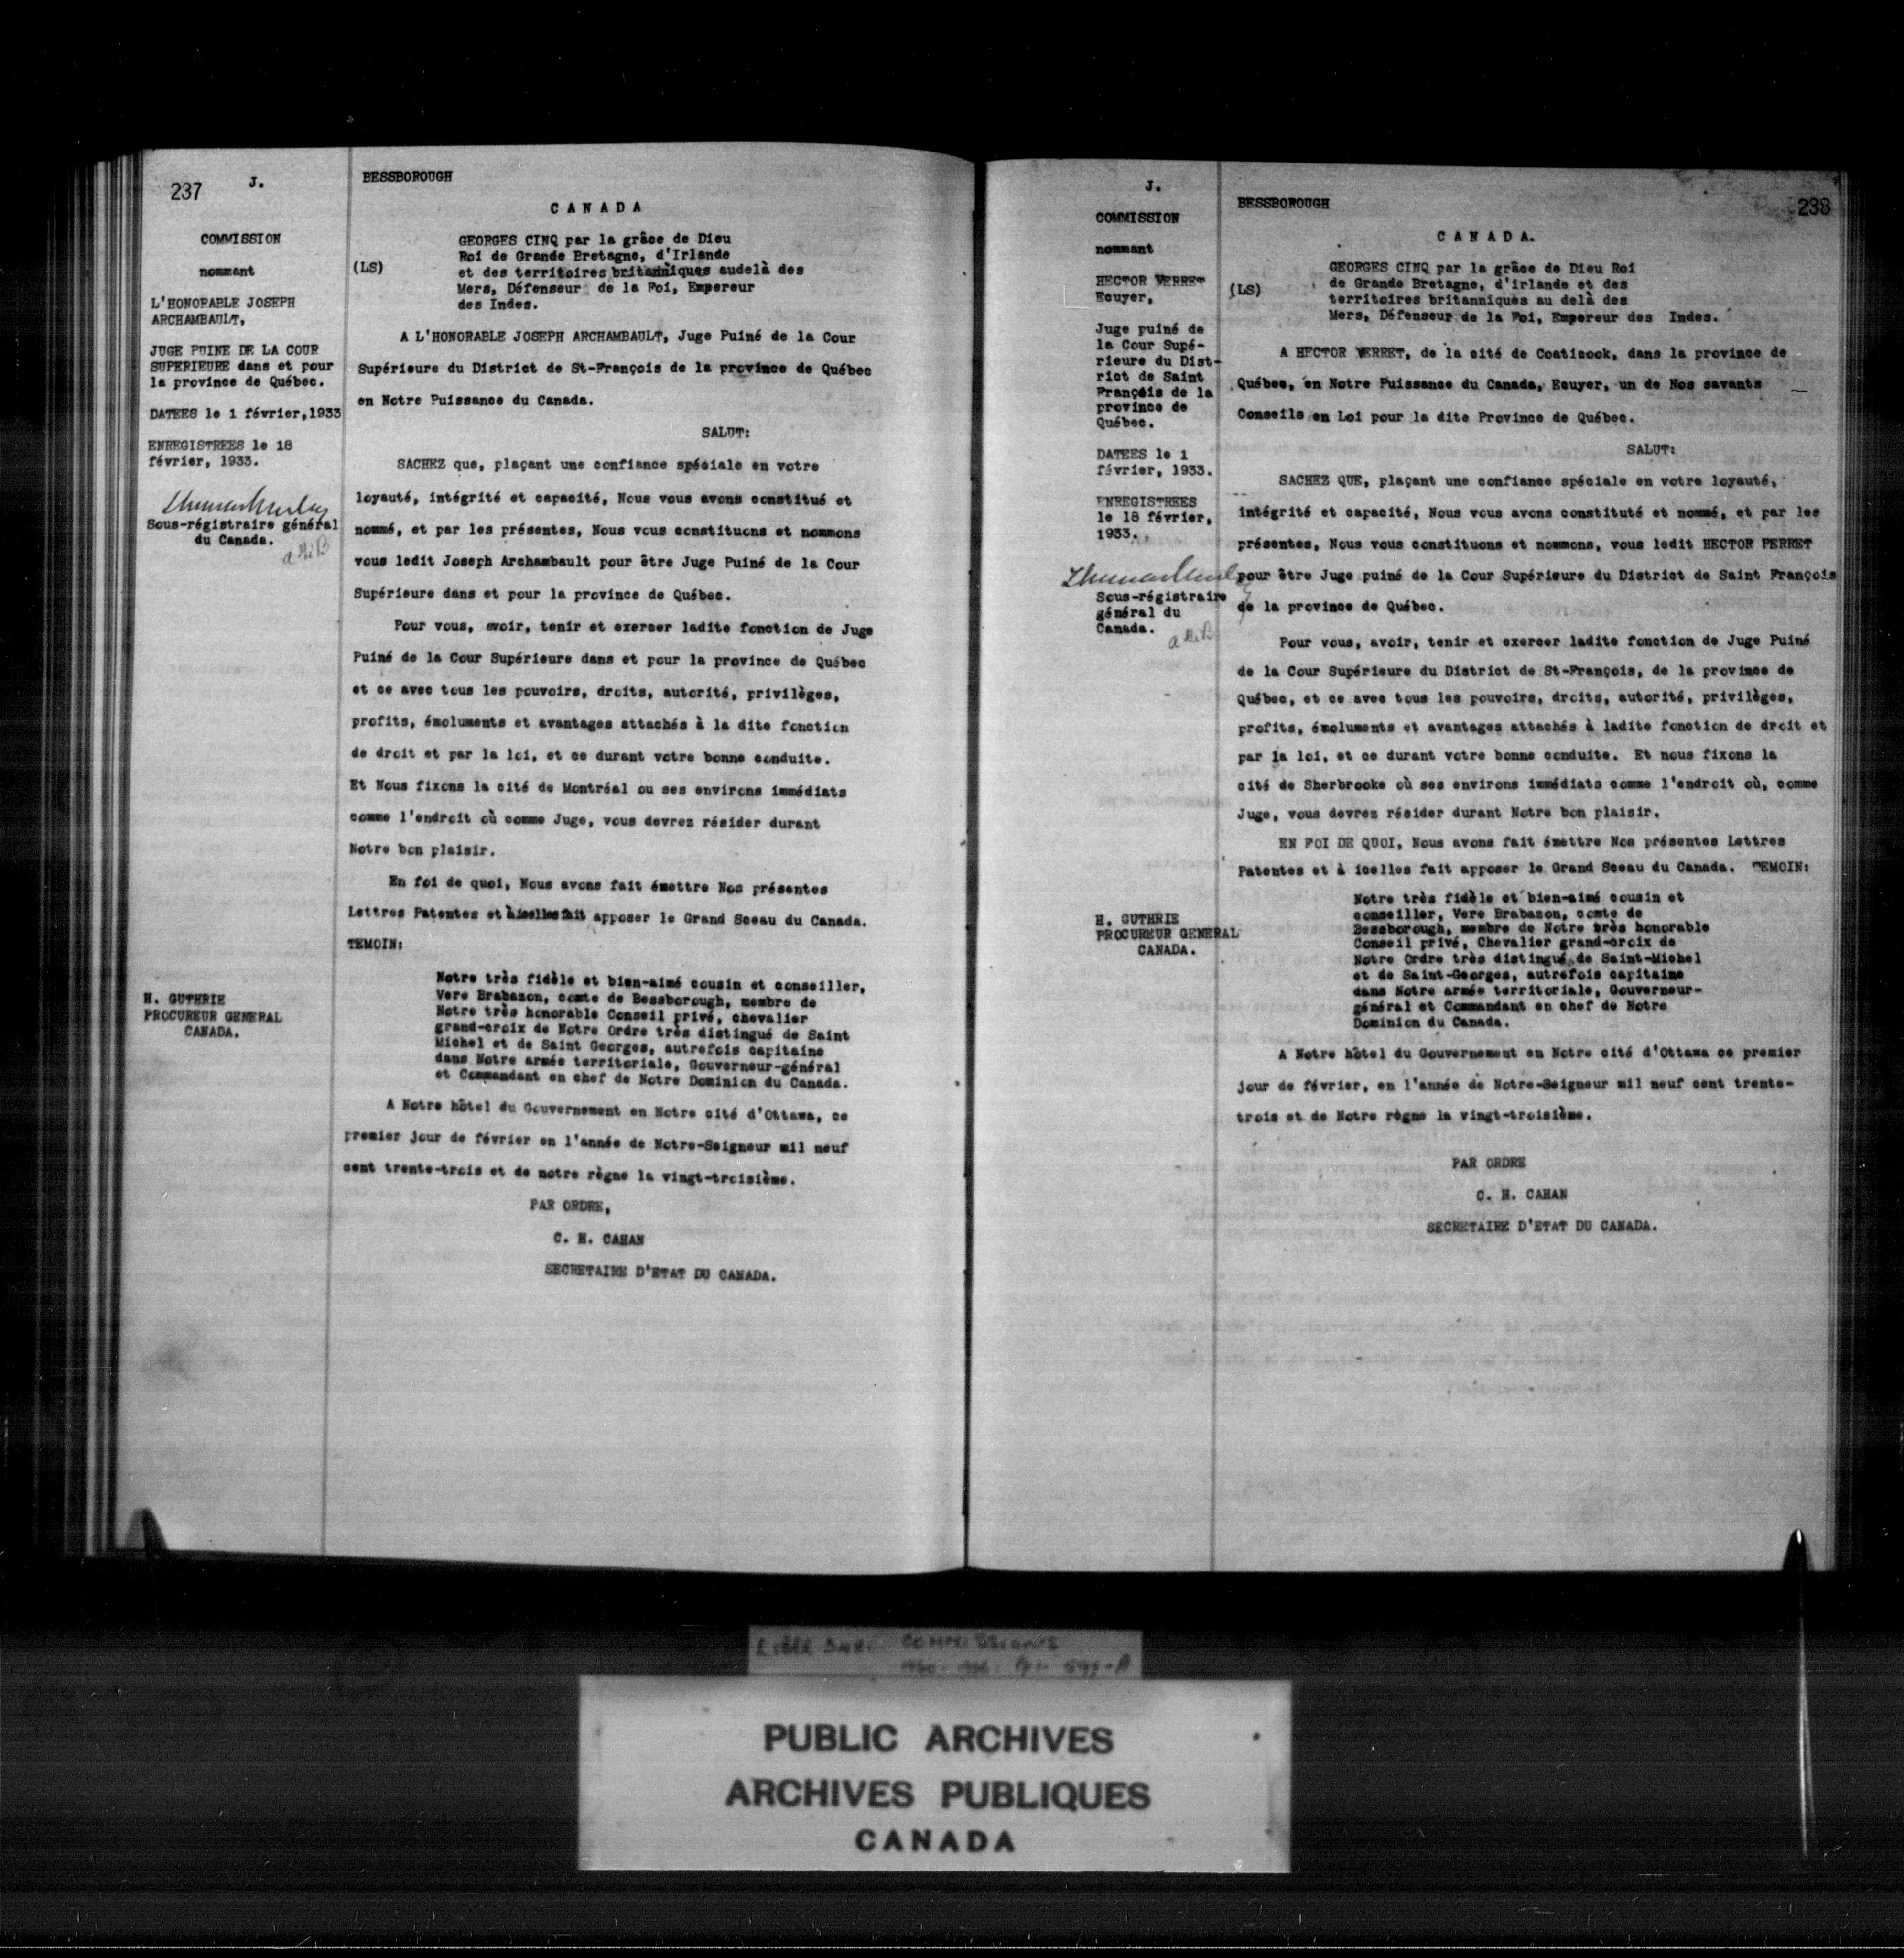 237
J.
COMMISSION
nommant
L'HONORABLE JOSEPH
ARCHAMBAULT,
JUGE PUINE DE LA COUR
SUPERIEURE dans et pour
la province de Québec.
DATEES le 1 février,1933
ENREGISTREES le 18
février, 1933.
Sous-régistraire général
du Canada.
H. GUTHRIE
PROCUREUR GENERAL
CANADA.
BESSBOROUGH
C A N A D A
(LS)
GEORGES CINQ par la grâce de Dieu
Roi de Grande Bretagne, d'Irlande
et des territoires britanniques audelà des
Mers, Défenseur de la Foi, Empereur
des Indes.
A L'HONORABLE JOSEPH ARCHAMBAULT, Juge Puiné de la Cour
Supérieure du District de St-François de la province de Québec
en Notre Puissance du Canada.
SALUT:
SACHEZ que, plaçant une confiance spéciale en votre
loyauté, intégrité et capacité, Nous vous avons constitué et
nommé, et par les présentes, Nous vous constituons et nommons
vous ledit Joseph Archambault pour être Juge Puiné de la Cour
Supérieure dans et pour la province de Québec.
Pour vous, avoir, tenir et exercer ladite fonction de Juge
Puiné de la Cour Supérieure dans et pour la province de Québec
et ce avec tous les pouvoirs, droits, autorité, privilèges,
profits, émoluments et avantages attachés à la dite fonction
de droit et par la loi, et ce durant votre bonne conduite.
Et Nous fixons la cité de Montréal ou ses environs immédiats
comme l'endroit où comme Juge, vous devrez résider durant
Notre bon plaisir.
En foi de quoi, Nous avons fait émettre Nos présentes
Lettres Patentes et à icelles fait apposer le Grand Sceau du Canada.
TEMOIN:
Notre très fidèle et bien-aimé cousin et conseiller,
Vere Brabazon, comte de Bessborough, membre de
Notre très honorable Conseil privé, chevalier
grand-croix de Notre Ordre très distingué de Saint
Michel et de Saint Georges, autrefois capitaine
dans Notre armée territoriale, Gouverneur-général
et Commandant en chef de Notre Dominion du Canada.
A Notre hôtel du Gouvernement en Notre cité d'Ottawa, ce
premier jour de février en l'année de Notre-Seigneur mil neuf
cent trente-trois et de notre règne la vingt-troisième.
PAR ORDRE,
C. H. CAHAN
SECRETAIRE D'ETAT DU CANADA.
J.
COMMISSION
nommant
HECTOR VERRET
Ecuyer,
Juge puiné de
la Cour Supé-
rieure du Dist-
rict de Saint
François de la
province de
Québec.
DATEES le 1
février, 1933.
ENREGISTREES
le 18 février,
1933.
Sous-régistraire
général du
Canada.
H. GUTHRIE
PROCUREUR GENERAL
CANADA.
BESSBOROUGH
238
C A N A D A.
(LS)
GEORGES CINQ par la grâce de Dieu Roi
de Grande Bretagne, d'irlande et des
territoires britanniques au delà des
Mers, Défenseur de la Foi, Empereur des Indes.
A HECTOR VERRET, de la cité de Coaticook, dans la province de
Québec, en Notre Puissance du Canada, Ecuyer, un de Nos savants
Conseils en Loi pour la dite Province de Québec.
SALUT:
SACHEZ QUE, plaçant une confiance spéciale en votre loyauté,
intégrité et capacité, Nous vous avons constituté et nommé, et par les
présentes, Nous vous constituons et nommons, vous ledit HECTOR PERRET
pour être Juge puiné de la Cour Supérieure du District de Saint François
de la province de Québec.
Pour vous, avoir, tenir et exercer ladite fonction de Juge Puiné
de la Cour Supérieure du District de St-François, de la province de
Québec, et ce avec tous les pouvoirs, droits, autorité, privilèges,
profits, émoluments et avantages attachés à ladite fonction de droit et
par la loi, et ce durant votre bonne conduite. Et nous fixons la
cité de Sherbrooke où ses environs immédiats comme l'endroit où, comme
Juge, vous devrez résider durant Notre bon plaisir.
EN FOI DE QUOI, Nous avons fait émettre Nos présentes Lettres
Patentes et à icelles fait apposer le Grand Sceau du Canada. TEMOIN:
Notre très fidèle et bien-aimé cousin et
conseiller, Vere Brabazon, comte de
Bessborough, membre de Notre très honorable
Conseil privé, Chevalier grand-croix de
Notre Ordre très distingué de Saint-Michel
et de Saint-Georges, autrefois capitaine
dans Notre armée territoriale, Gouverneur-
général et Commandant en chef de Notre
Dominion du Canada.
A Notre hôtel du Gouvernement en Notre cité d'Ottawa ce premier
jour de février, en l'année de Notre-Seigneur mil neuf cent trente-
trois et de Notre règne la vingt-troisième.
PAR ORDRE
C. H. CAHAN
SECRETAIRE D'ETAT DU CANADA.
LIBER 348. COMMISSIONS
PUBLIC ARCHIVES
ARCHIVES PUBLIQUES
CANADA